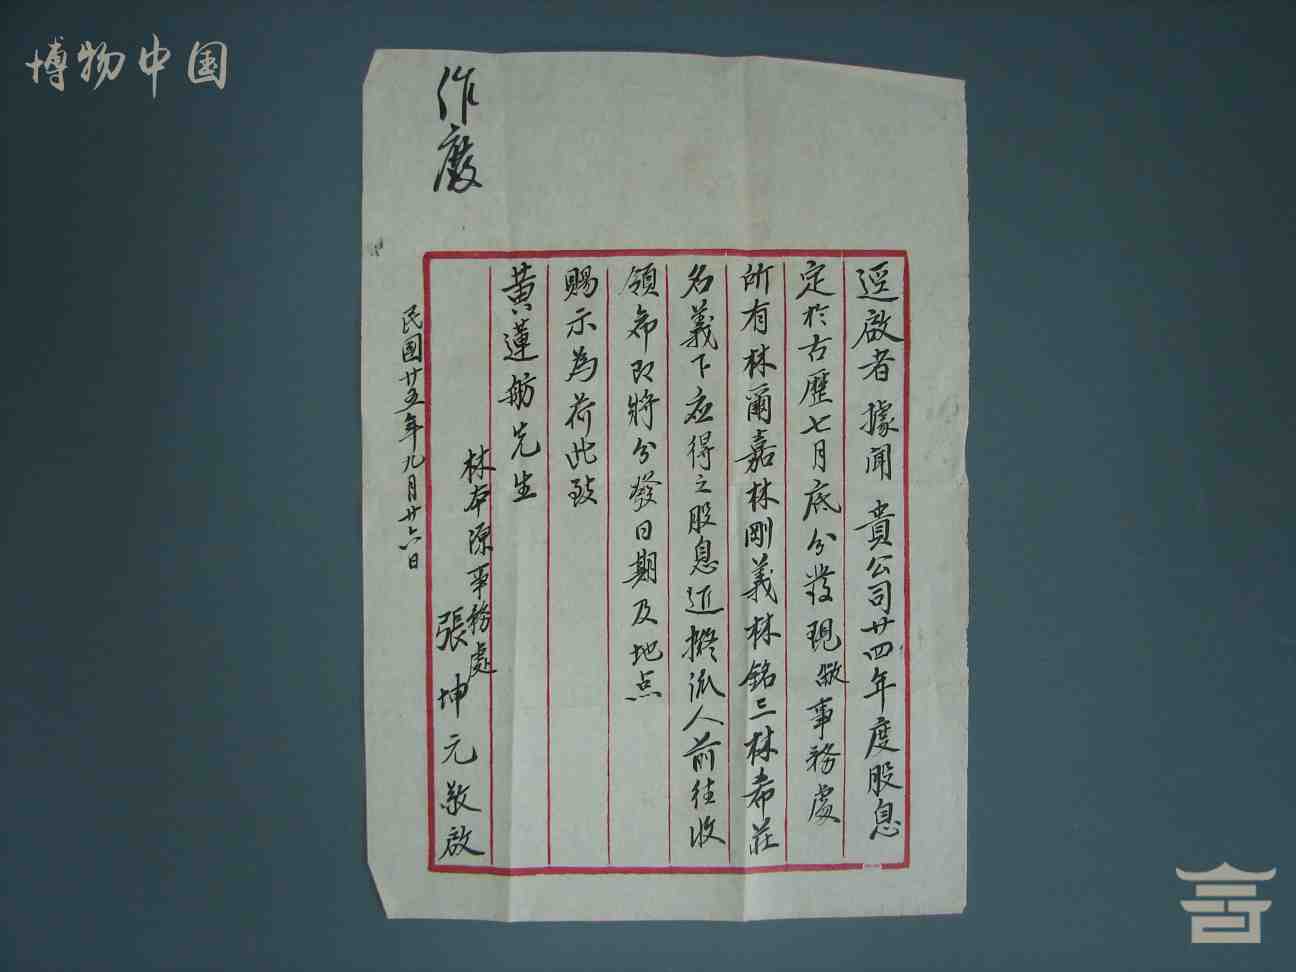 博物中国
作廢
逕啟者據聞 貴公司廿四年度股息
定於古歷七月底分發現敝事務處
所有林爾嘉林剛義林銘三林希莊
名義下应得之股息近擬派人前往收
領希即將分發日期及地点
賜示為荷此致
黃蓮舫先生
林本源事務處
張坤元敬啟
民國廿五年九月廿六日